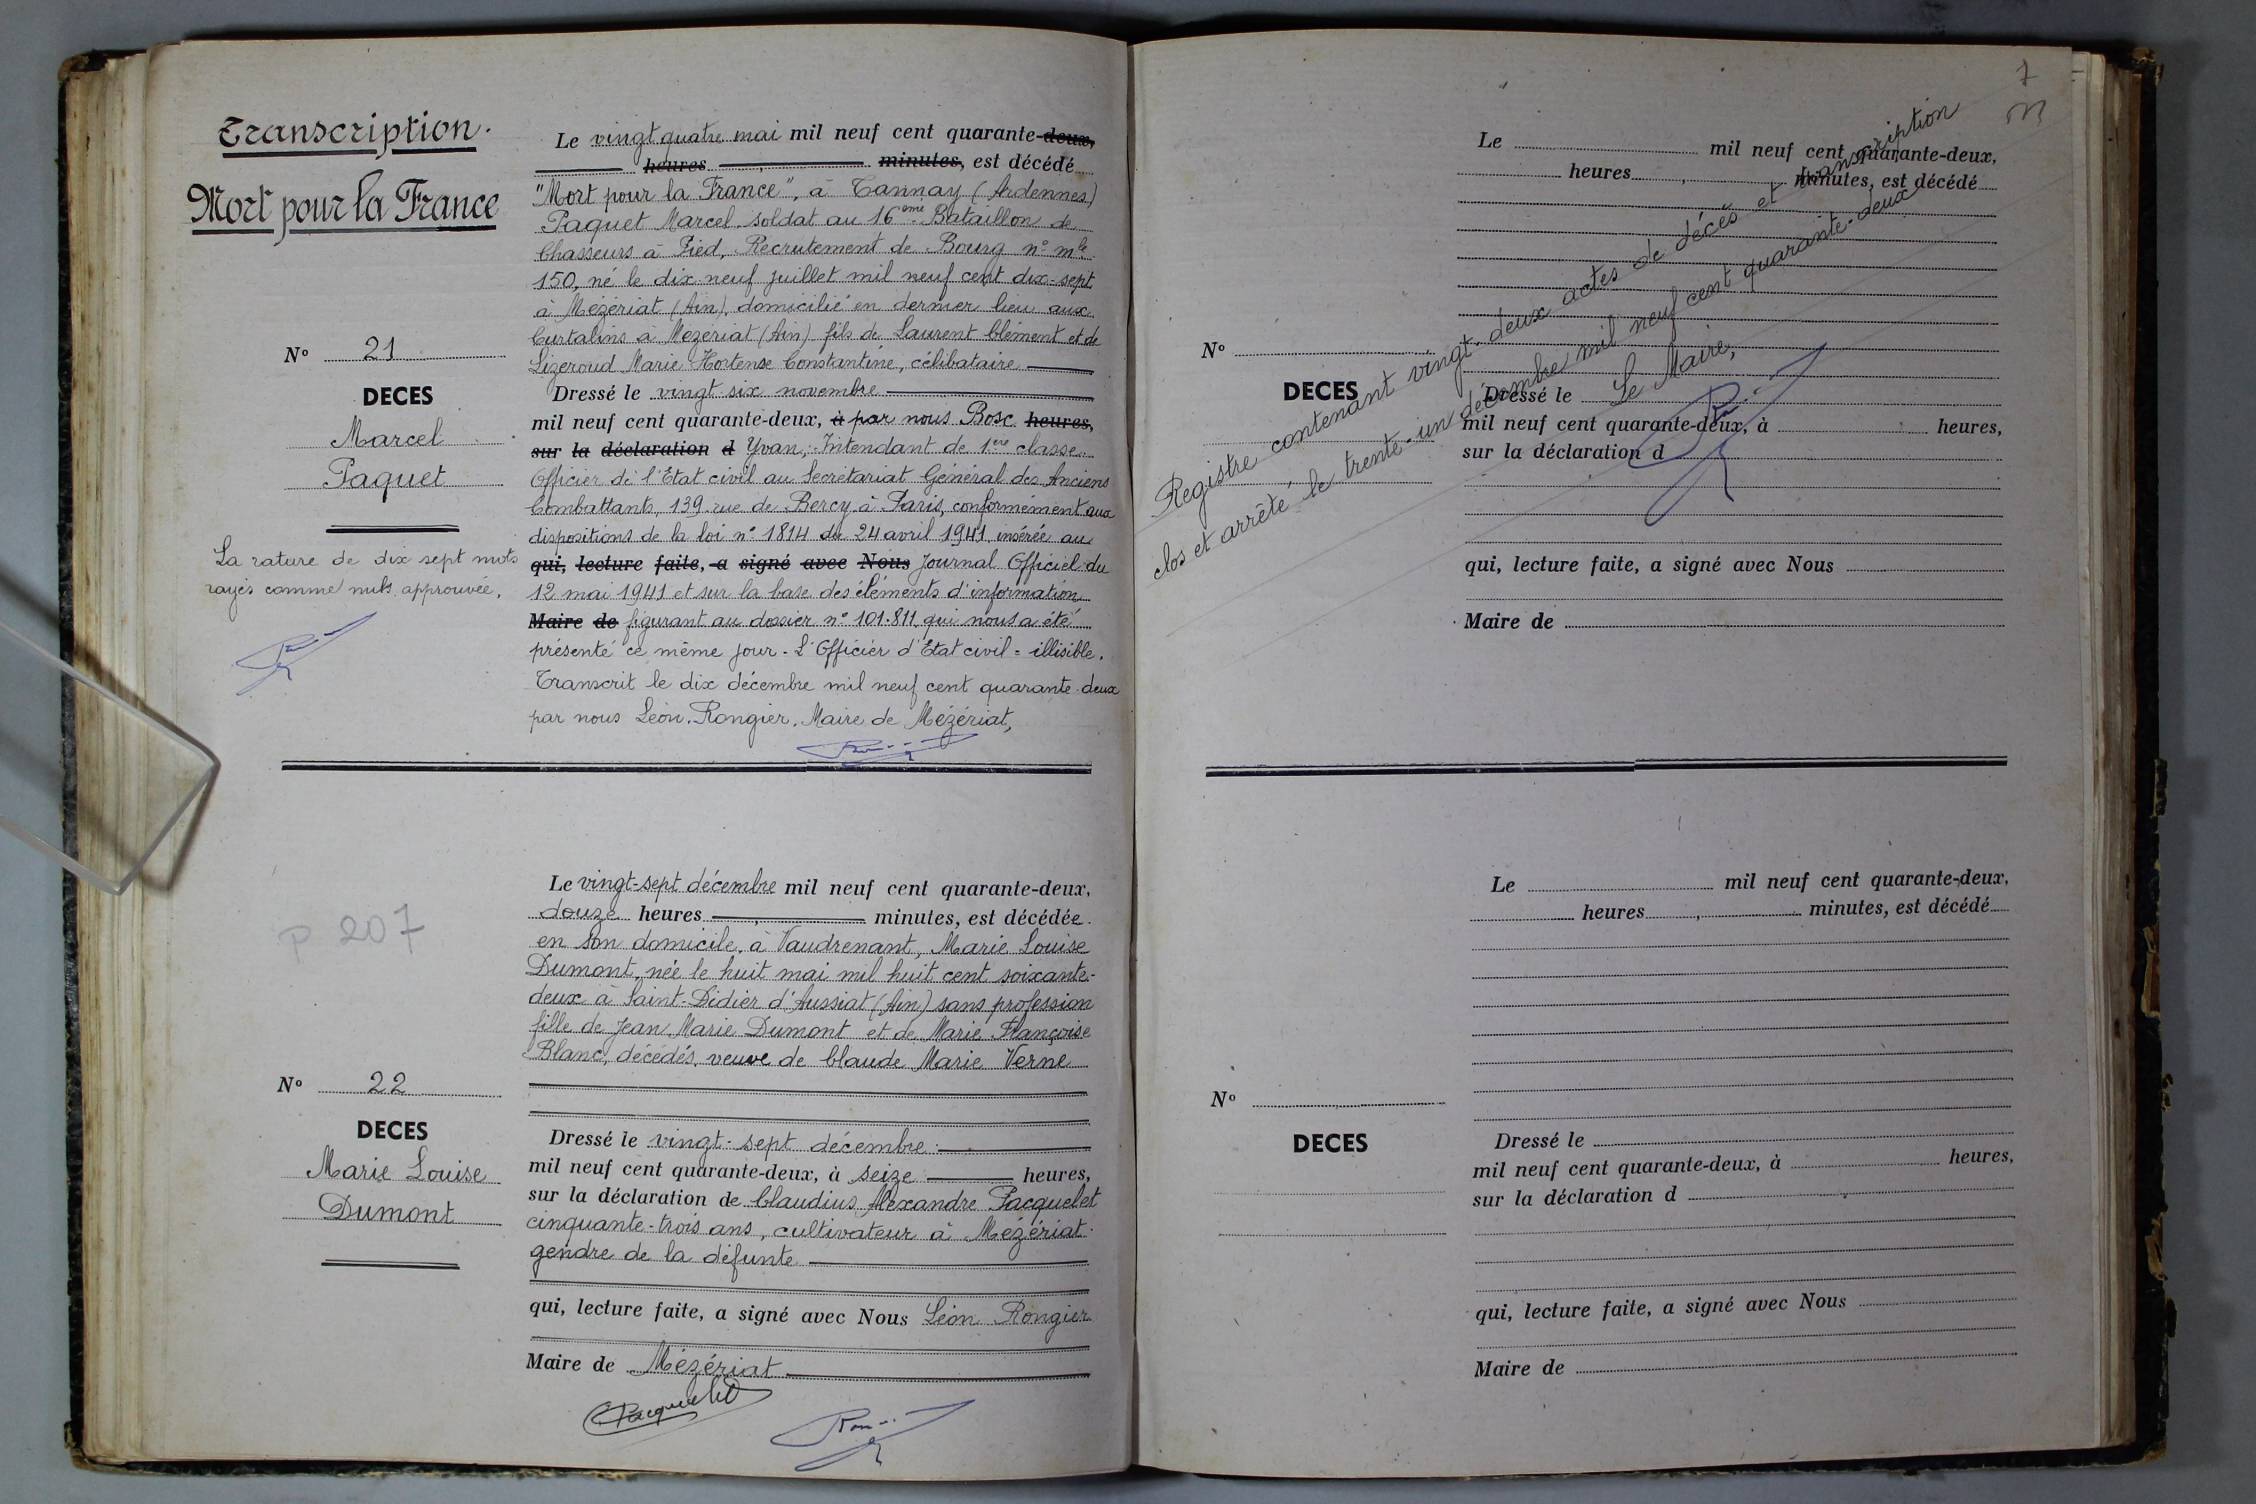 Transcription.
Mort pour la France
N° 21
DECES
Marcel
Paquet
La rature de dix sept mots
rayés comme nuls approuvée.
Le vingt quatre mai mil neuf cent quarante-deux,
heures minutes, est décédé
"Mort pour la France", à Tannay (Ardennes)
Paquet Marcel soldat au 16ème Bataillon de
Chasseurs à Pied, Recrutement de Bourg n° mle
150, né le dix neuf juillet mil neuf cent dix-sept
à Mézériat (Ain), domicilié en dernier lieu aux
Curtalins à Mézériat (Ain) fils de Laurent Clément et de
Lizeroud Marie Hortense Constantine, célibataire
Dressé le vingt six novembre
mil neuf cent quarante-deux, à par nous Bosc heures,
sur la déclaration d Yvan, Intendant de 1ère classe
Officier de l'Etat civil au Secrétariat Général des Anciens
Combattants, 139 rue de Bercy à Paris, conformément aux
dispositions de la loi n° 1814 du 24 avril 1941 insérée au
qui, lecture faite, a signé avec Nous Journal Officiel du
12 mai 1941 et sur la base des éléments d'information
Maire de figurant au dossier n° 101.811 qui nous a été
présenté ce même jour - L'Officier d'Etat civil = illisible.
Transcrit le dix décembre mil neuf cent quarante-deux
par nous Léon Rongier, Maire de Mézériat,
p 207
N° 22
DECES
Marie Louise
Dumont
Le vingt-sept décembre mil neuf cent quarante-deux,
douze heures minutes, est décédée
en son domicile, à Vaudrenant, Marie Louise
Dumont, née le huit mai mil huit cent soixante-
deux à Saint-Didier d'Aussiat (Ain) sans profession
fille de Jean Marie Dumont et de Marie Françoise
Blanc, décédés, veuve de Claude Marie Verne
Dressé le vingt-sept décembre
mil neuf cent quarante-deux, à seize heures,
sur la déclaration de Claudius Alexandre Pacquelet
cinquante-trois ans, cultivateur à Mézériat
gendre de la défunte
qui, lecture faite, a signé avec Nous Léon Rongier
Maire de Mézériat
CPacquelet
7
Le mil neuf cent quarante-deux,
heures, minutes, est décédé
N°
DECES
Dressé le
mil neuf cent quarante-deux, à heures,
sur la déclaration d
qui, lecture faite, a signé avec Nous
Maire de
Registre contenant vingt-deux actes de décès et transcription
clos et arrêté le trente-un décembre mil neuf cent quarante-deux
Le Maire,
Le mil neuf cent quarante-deux,
heures, minutes, est décédé
N°
DECES
Dressé le
mil neuf cent quarante-deux, à heures,
sur la déclaration d
qui, lecture faite, a signé avec Nous
Maire de